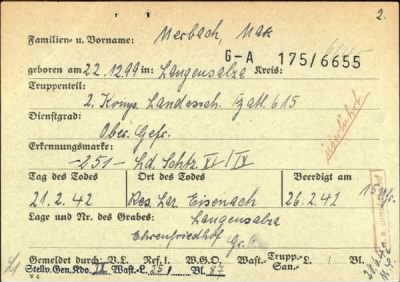 2.
Familien- u. Vorname: Merbach, Max
G-A 175/6655
geboren am 22.12.99 in: Langensalza Kreis:
Truppenteil:
2. Komp. Landessch. Batl 615
Dienstgrad:
Ober. Gefr.
Erkennungsmarke:
-251- Ld. Schtz. XI/IX
Tag des Todes Ort des Todes Beerdigt am
21.2.42 Res. Laz. Eisenach 26.2.42 15
Lage und Nr. des Grabes: Langensalza
Ehrenfriedhof Gr.
Gemeldet durch: V.L. Ref. I. W.G.O. Wast.- Trupp.- L.
San.-
Stellv. Gen. Kdo. IX Wast.-L. 251 Bl. 47
V 4
überführt
28.6.42